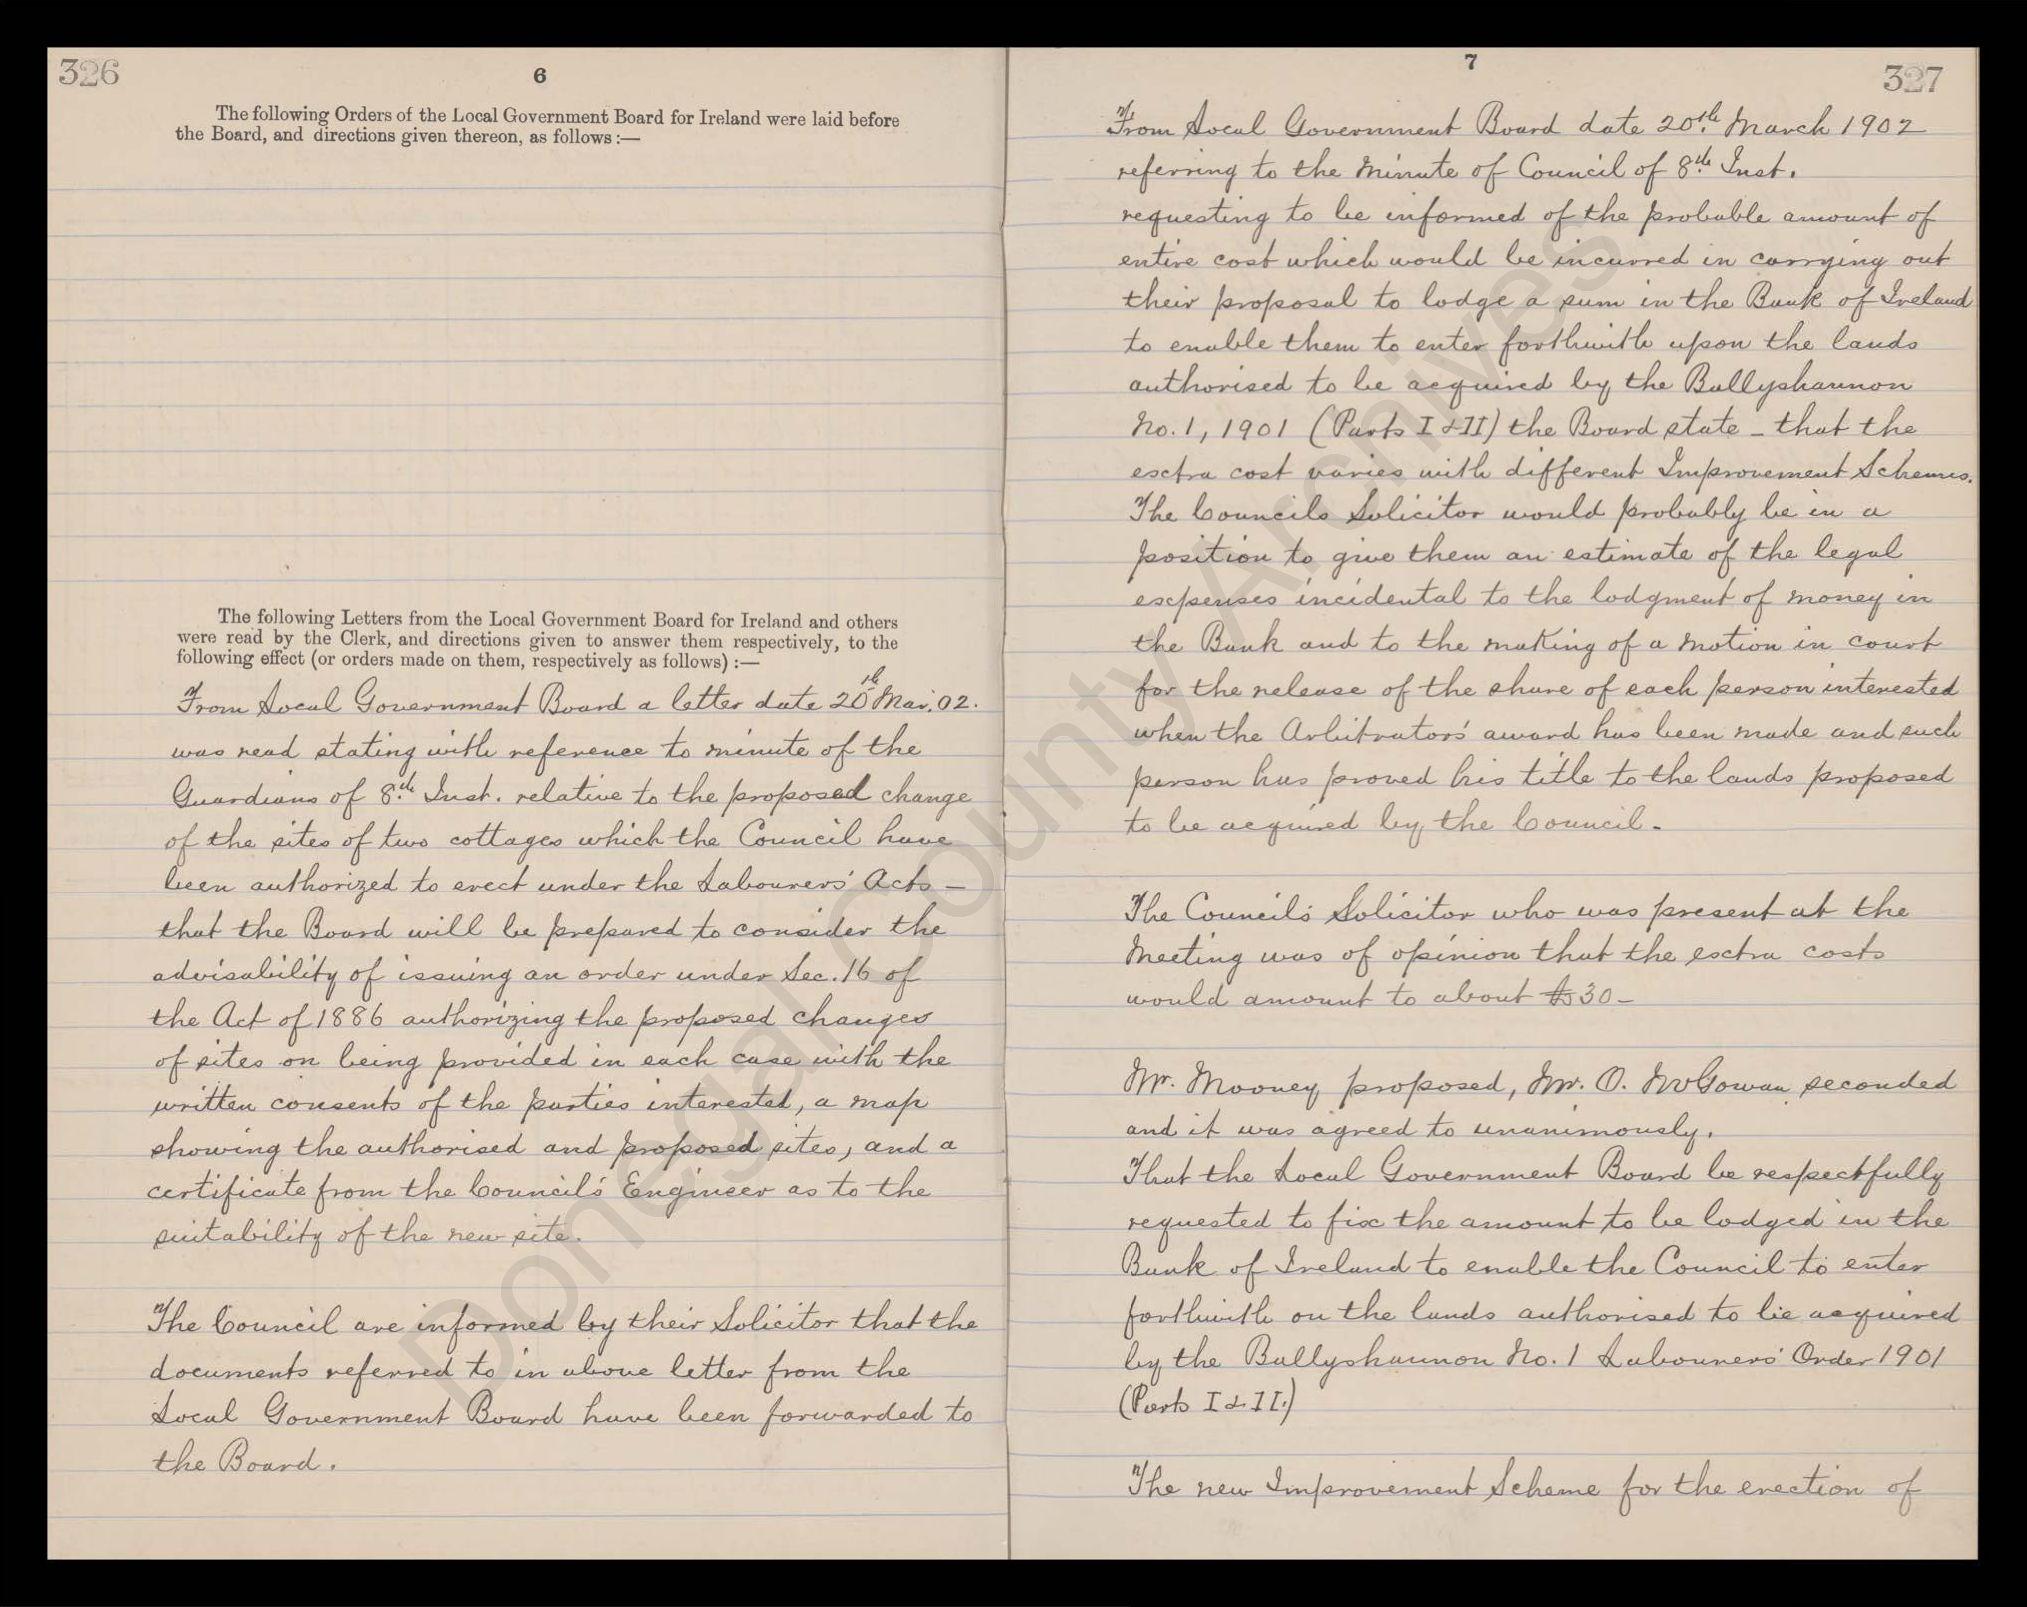 326
6
The following Orders of the Local Government Board for Ireland were laid before
the Board, and directions given thereon, as follows :—
The following Letters from the Local Government Board for Ireland and others
were read by the Clerk, and directions given to answer them respectively, to the
following effect (or orders made on them, respectively as follows) :—
From Local Government Board a letter date 20th Mar. 02.
was read stating with reference to minute of the
Guardians of 8th Inst. relative to the proposed change
of the sites of two cottages which the Council have
been authorized to erect under the Labourers' Acts —
that the Board will be prepared to consider the
advisability of issuing an order under Sec. 16 of
the Act of 1886 authorizing the proposed changes
of sites on being provided in each case with the
written consents of the parties interested, a map
showing the authorised and proposed sites, and a
certificate from the Council's Engineer as to the
suitability of the new site.
The Council are informed by their Solicitor that the
documents referred to in above letter from the
Local Government Board have been forwarded to
the Board.
7
327
From Local Government Board date 20th March 1902
referring to the minute of Council of 8th Inst.
requesting to be informed of the probable amount of
entire cost which would be incurred in carrying out
their proposal to lodge a sum in the Bank of Ireland
to enable them to enter forthwith upon the lands
authorised to be acquired by the Ballyshannon
No. 1, 1901 (Parts I & II) the Board state - that the
extra cost varies with different Improvement Schemes.
The Councils Solicitor would probably be in a
position to give them an estimate of the legal
expenses incidental to the lodgment of money in
the Bank and to the making of a motion in court
for the release of the share of each person interested
when the Arbitrators' award has been made and such
person has proved his title to the lands proposed
to be acquired by the Council.
The Council's Solicitor who was present at the
Meeting was of opinion that the extra costs
would amount to about £30-
Mr. Mooney proposed, Mr. O. McGowan seconded
and it was agreed to unanimously.
That the Local Government Board be respectfully
requested to fix the amount to be lodged in the
Bank of Ireland to enable the Council to enter
forthwith on the lands authorised to be acquired
by the Ballyshannon No. 1 Labourers' Order 1901
(Parts I & II.)
The new Improvement Scheme for the erection of
Donegal County Archives